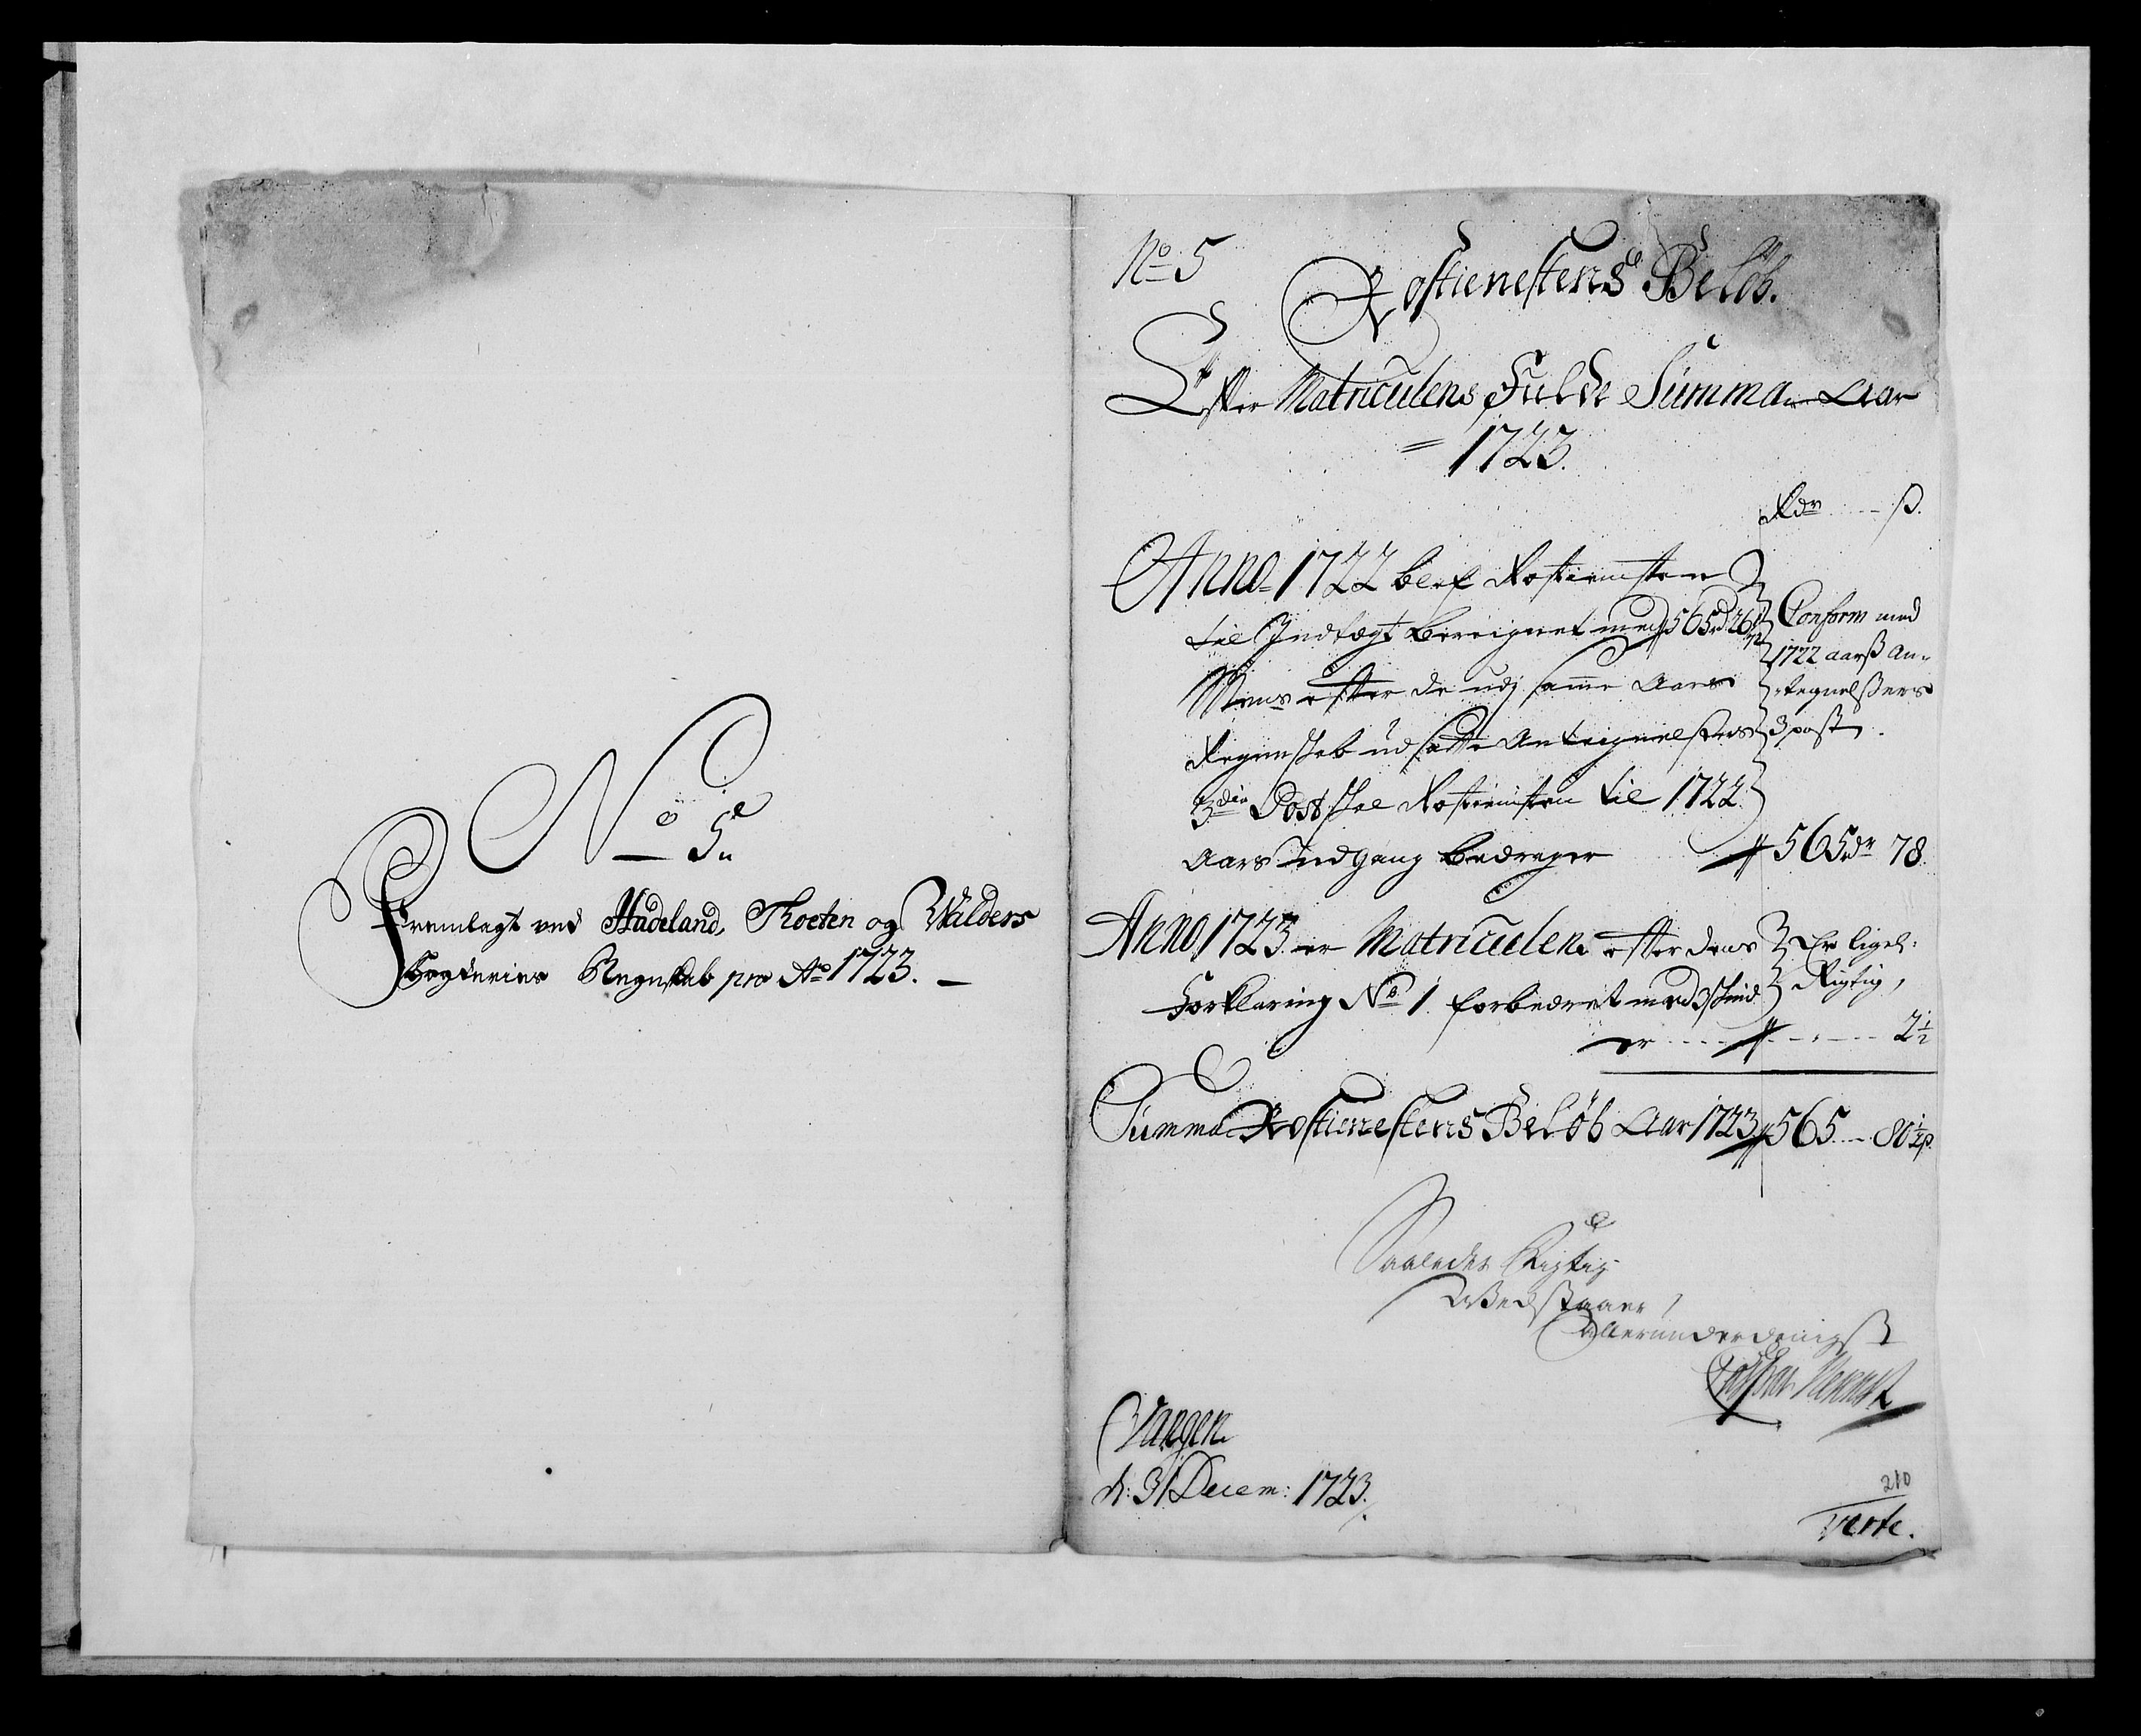 No 5.
Fremlagt ved Hadeland, Thoeten og Walders
Fogderies Regnskab pro Ao 1723.
No 5
Rostienestens Beløb.
Efter Matriculens Fulde Summa Aar
1723.
Rdr ß.
Anno 1722 blef Rostienisten
til Indtægt bereignet med 565 rd 26
Mens efter de udj samme Aars
Regenskab udsatte Anteignelsers
3die Post skal Rostienisten til 1722
Aars Udgang bedrager 565 dr 78
Conform med
1722 aarß An-
tegnelßers
3 post.
Anno 1723 er Matriculen efter dens
Forklaring No 1 forbedret med 3 skind
er 2½
Er ligel:
Rigtig,
Summa Rostienestens Beløb Aar 1723 565 80½ ß.
Saaledes Rigtig
Vedstaaer
Allerunderdanigst
Vangen
d: 31 Decem: 1723.
210
Verte.